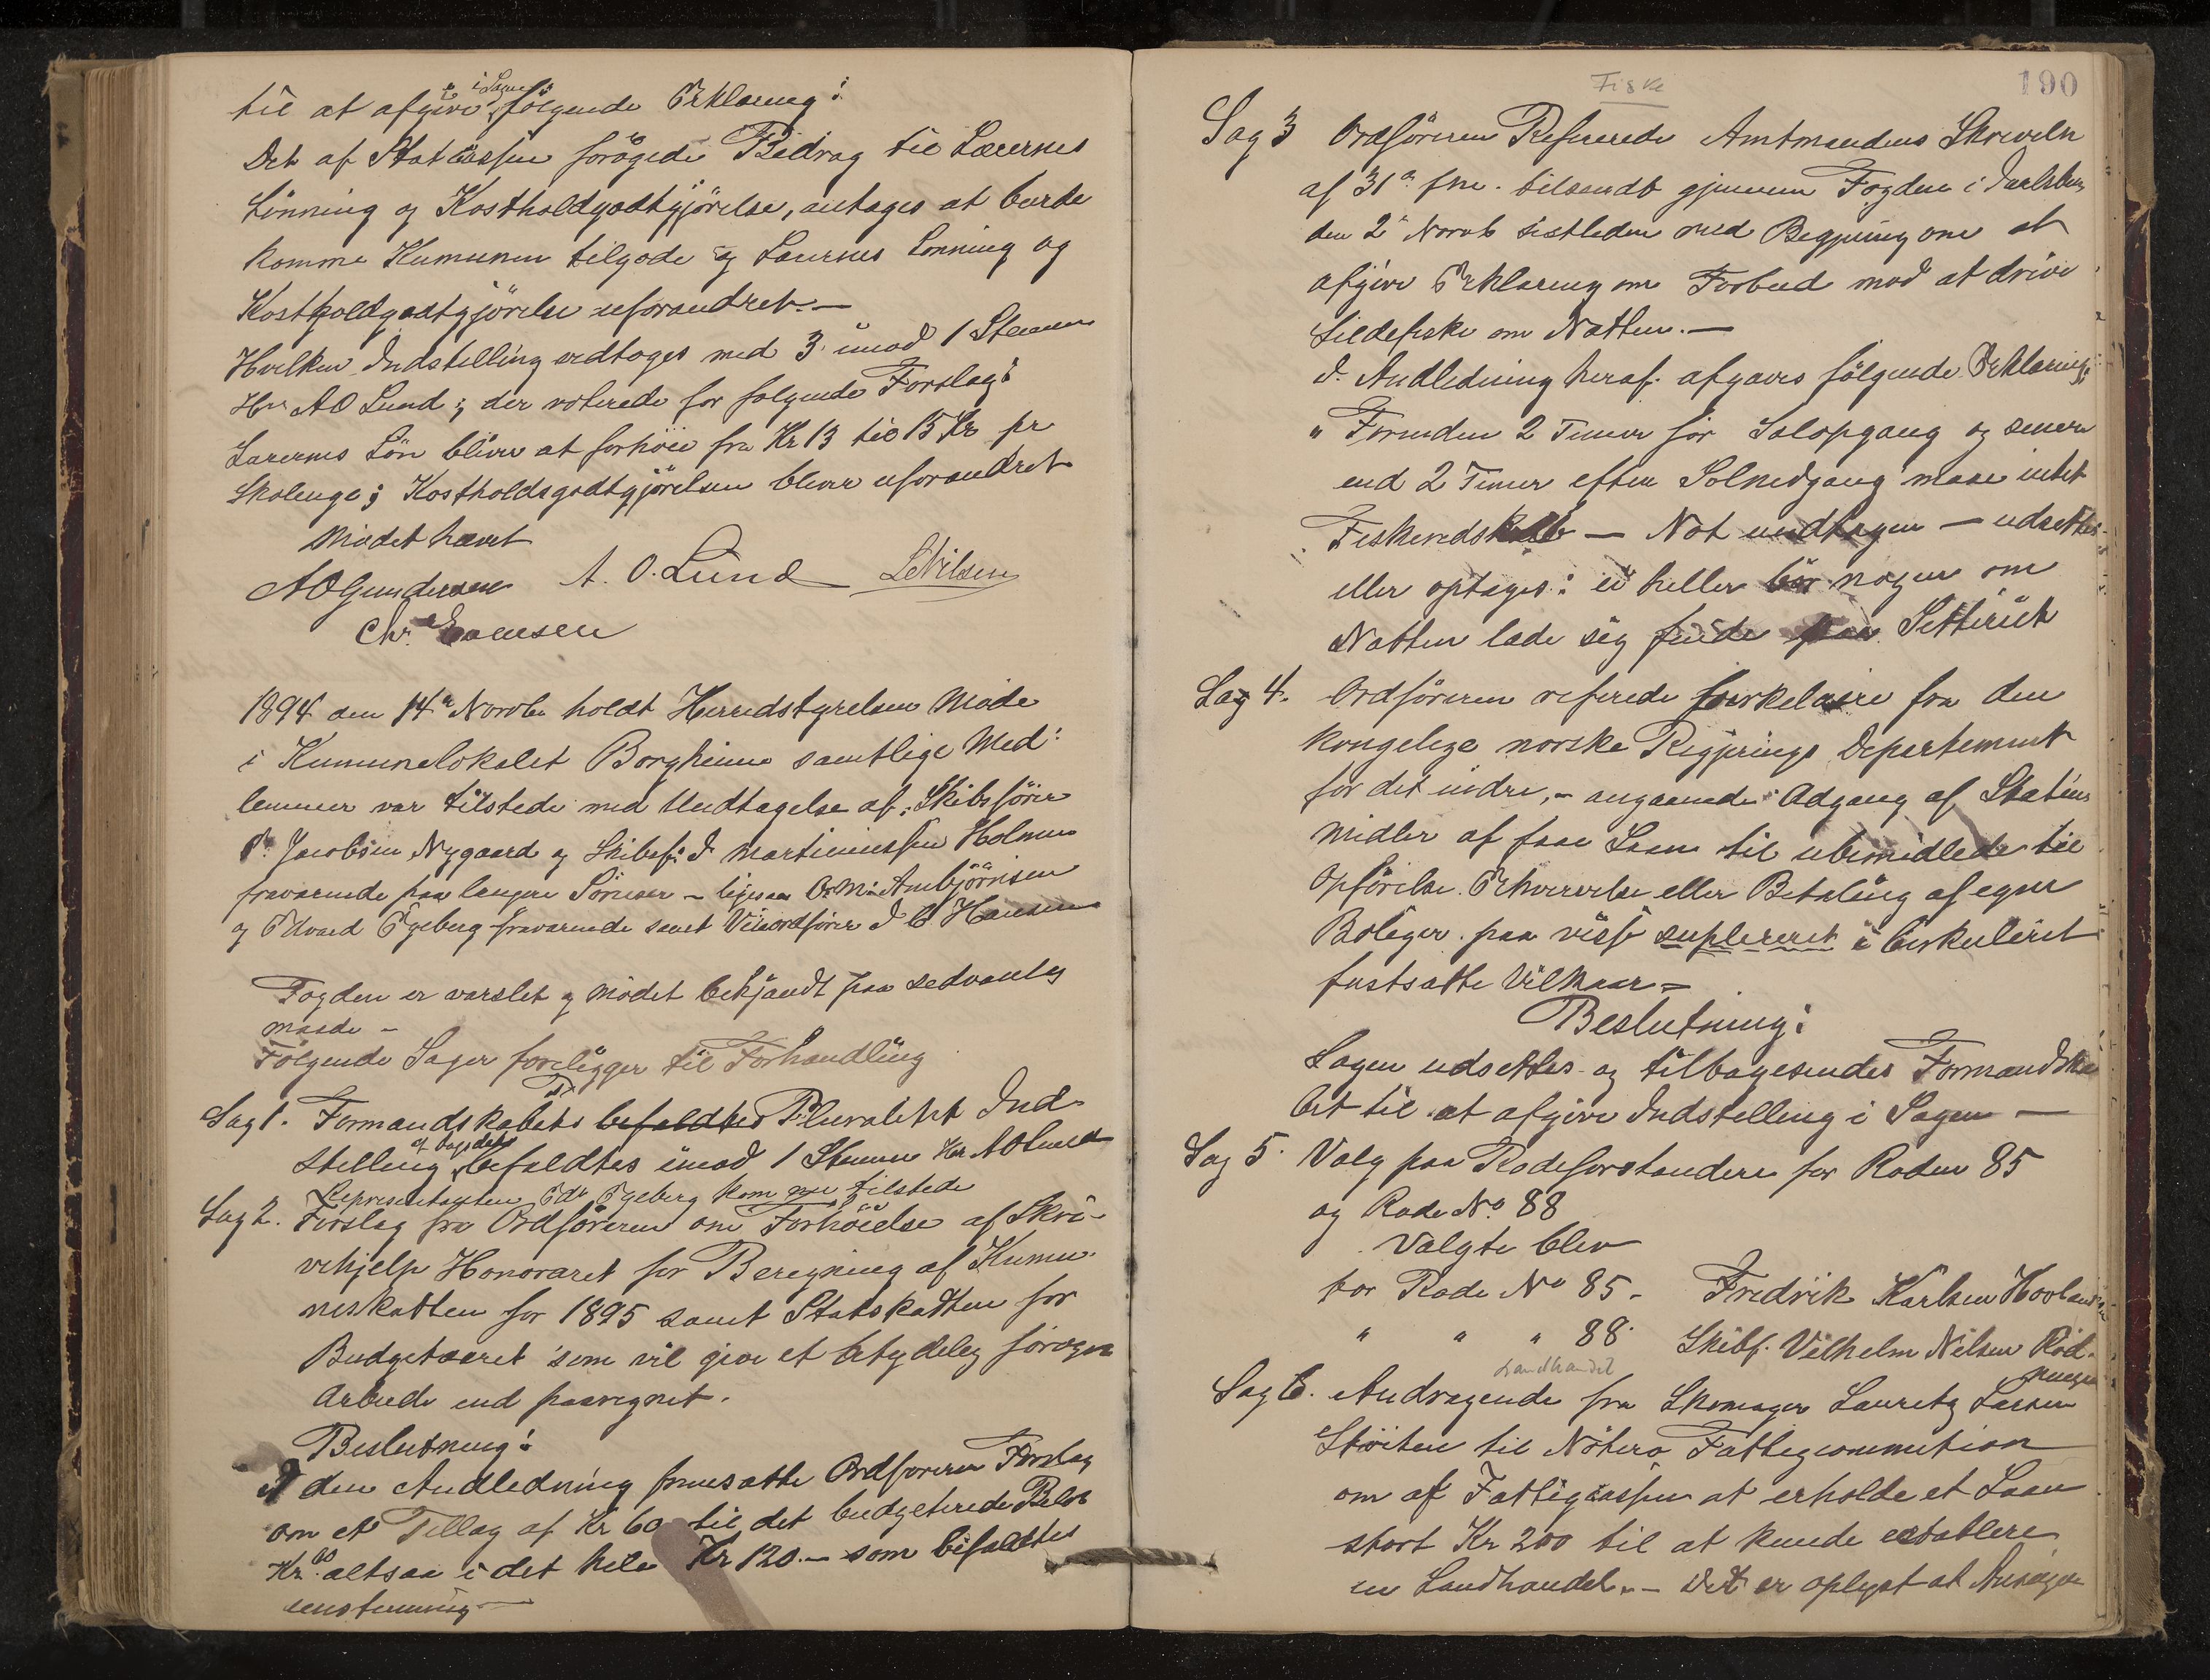 til at afgive i Sagen følgende Erklæring:
Det af Statcassen forøgede Bidrag til Lærernes
Lønning og Kostholdgodtgjørelse, antages at burde
komme Kumunen tilgode og Lærernes Lønning og
Kostholdgodtgjørelse uforandret. —
Hvilken Indstilling vedtoges med 3 imod 1 Stemme
Hr A O Lund; der voterede for følgende Forslag:
Lærernes Løn bliver at forhøie fra Kr 13 til 15 Kr pr
Skoleuge; Kostholdsgodtgjørelsen bliver uforandret
Mødet hævet
A O Gundersen A. O. Lund L Nilsen
Chr
1894 den 14de Novbr holdt Herredstyrelsen Møde
i Kumunelokalet Borgheim samtlige Med-
lemmer var tilstede med Undtagelse af: Skibsfører
Jacobsen Nygaard og Skibsf: J Martiniussen Holmen
fraværende paa længere Søreiser - ligesaa O. M. Ambjørnsen
og Edvard Ogeberg fraværende samt Viceordfører J C Hansen
Fogden er varslet og Mødet bekjændt paa sedvanlig
maade -
Følgende Sager foreligger til Forhandling
Sag 1. Formandskabets befaldtes Pluralitet Ind-
stilling befaldtes imod 1 Stemme Hr A O Lund
Representanten Edv Ogeberg kom nu tilstede
Sag 2. Forslag fra Ordføreren om Forhøielse af Skri-
vehjelp Honoraret for Beregning af Kumu-
neskatten for 1895 samt Statskatten for
Budgetaaret som vil give et betydelig forøget
Arbeide end paaregnet.
Beslutning:
I den Andledning fremsatte Ordføreren Forslag
om et Tillæg af Kr 60 til det budgeterede Beløb
Kr 60 altsaa i det hele Kr 120. — som bifaldtes
enstemmig —
190
Fiske
Sag 3 Ordføreren Refererede Amtmandens Skrivelse
af 31te f.m. tilsendt gjennem Fogden i Jarlsberg
den 2den Novbr sistleden med Begjæring om at
afgive Erklæring om Forbud mod at drive
Sildefiske om Natten. —
I Andledning heraf afgaves følgende Erklæring:
" Forinden 2 Timer før Solopgang og senere
end 2 Timer efter Solnedgang maae intet
Fiskeredskab — Not undtagen — udsættes
eller optages: ei heller bør nogen om
Natten lade sig finde paa
Sag 4. Ordføreren refererede Cirkulære fra den
kongelige norske Regjerings Departement
for det indre, - angaaende Adgang af Statens
Midler af faae Laan til ubemidlede til
Opførelse. Erhvervelse eller Betaling af egne
Boliger paa visse i Cirkuleret
fastsatte Vilkaar =
Beslutning:
Sagen udsettes og tilbagesendes Formandska
bet til at afgive Indstilling i Sagen —
Sag 5. Valg paa Rodeforstandere for Roden 85
og Rode No 88
Valgte blev
for Rode No 85 - Fredrik Karlsen Hovland
" " " 88. Skibsf. Vilhelm Nilsen Rød-
Landhandel
Sag 6. Andragende fra Skomager Lauretz Larsen
Støiten til Nøterø Fattigcommition
om af Fattigcassen at erholde et Laan
stort Kr 200 til at kunde establere
en Landhandel. — Det er oplyst at Ansøgeren